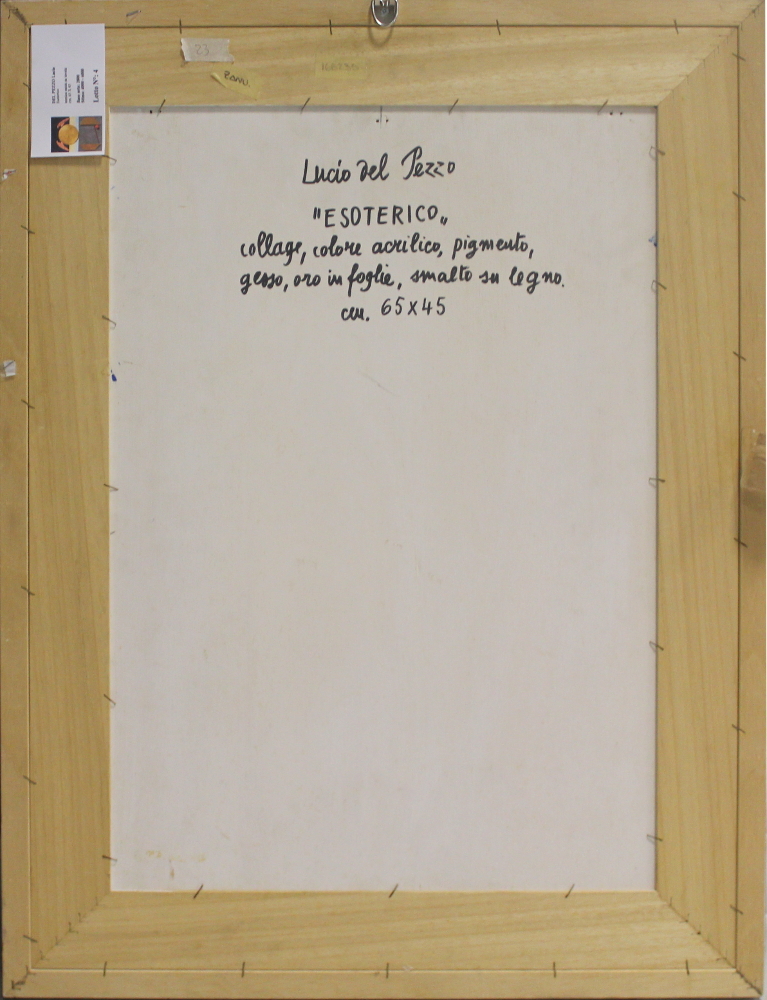 Lucio Del Pezzo
"ESOTERICO"
collage, colore acrilico, pigmento,
gesso, oro in foglie, smalto su legno.
cm. 65x45
23
DEL PEZZO Lucio
Lotto N°: 4